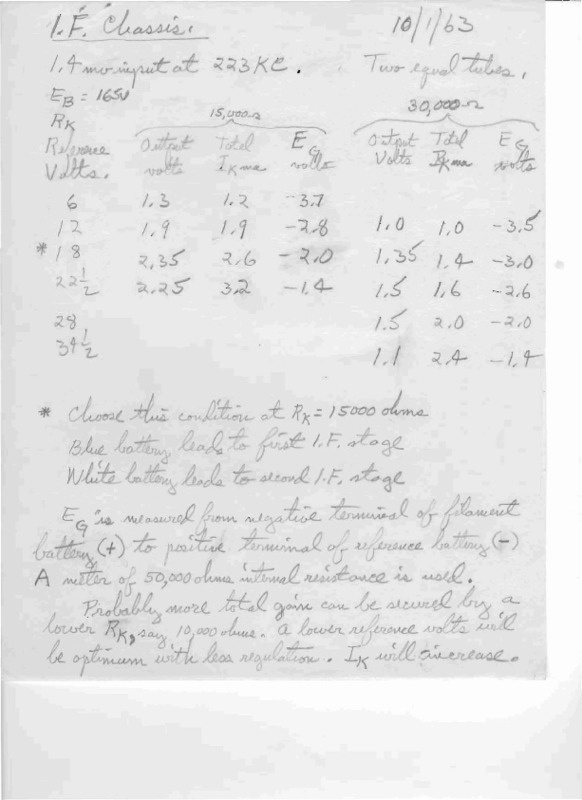 I.F. Chassis. 10/1/63
1.4 mv input at 223 KC. Two equal tubes.
EB = 165V
RK 15,000Ω 30,000Ω
Reference Output Total EG Output Total EG
Volts. volts IK ma volts Volts IK ma volts
6 1.3 1.2 -3.7
12 1.9 1.9 -2.8 1.0 1.0 -3.5
* 18 2.35 2.6 -2.0 1.35 1.4 -3.0
22 1/2 2.25 3.2 -1.4 1.5 1.6 -2.6
28 1.5 2.0 -2.0
34 1/2 1.1 2.4 -1.4
* Choose this condition at RK = 15000 ohms
Blue battery leads to first I.F. stage
White battery leads to second I.F. stage
EG is measured from negative terminal of filament
battery (+) to positive terminal of reference battery (-)
A meter of 50,000 ohms internal resistance is used.
Probably more total gain can be secured by a
lower RK, say 10,000 ohms. A lower reference volts will
be optimum with less regulation. IK will increase.